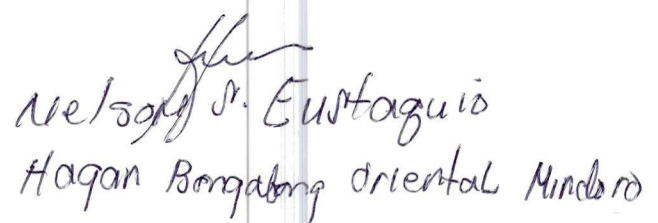 Nelson S. Eustaquio
Hagan Bongabong Oriental Mindoro